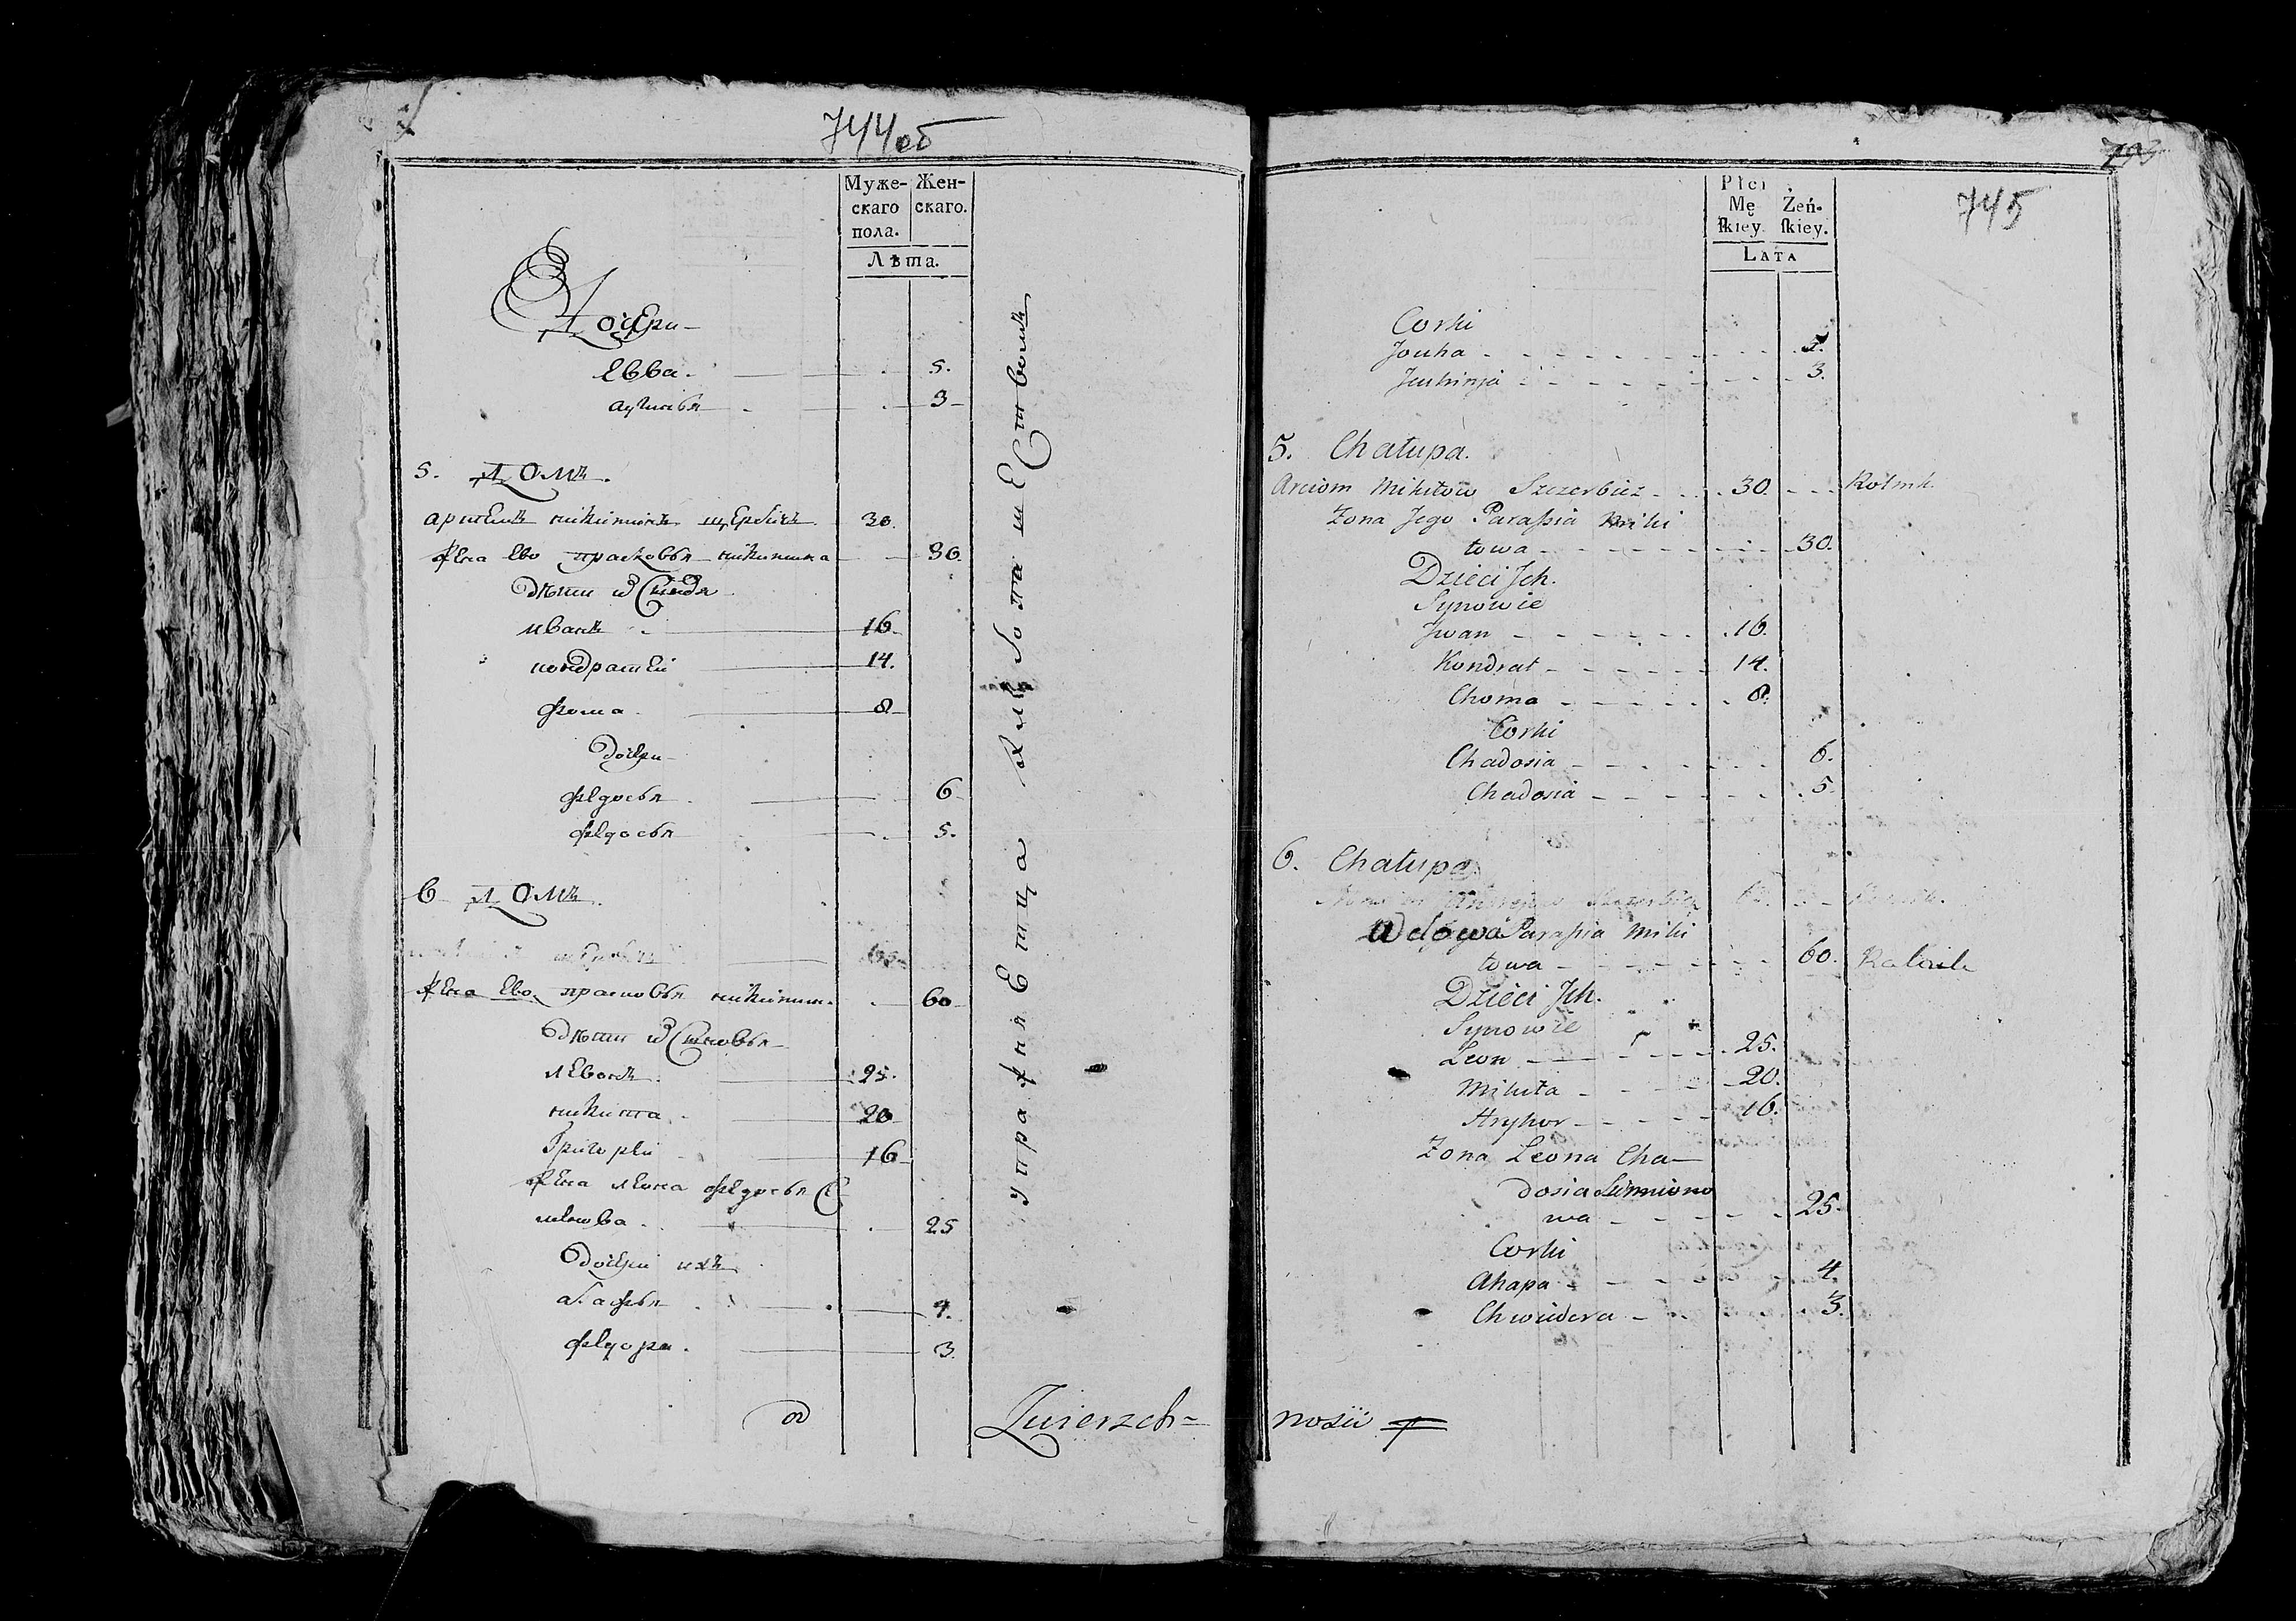 744об
Муже- Жен-
скаго скаго.
пола.
Лѣта.
Дочери
Евва 5.
3
5. Домъ.
артемъ никитинъ щербичъ 30.
жена ево прасковья никитина 30.
дѣти и Сыновья
иванъ 16
кондратей 14.
фома 8
дочери
федосья 6
федосья 5.
6 Домъ.
жена ево прасковья никитин. 60
дѣти и Сыновья
левонъ 25.
никита 20
григорей 16
жена леона федосья Се
менова 25
дочери ихъ
агафья 4.
федора 3
упражняетца хлебопашеством
Zwierzch=
793
745
Płci
Mę Żeń-
ſkiey ſkiey.
LATA
Corki
Jouha 5.
Jeuhinja 3.
5. Chałupa.
Arciom Mikitow Szczerbicz 30. Rolnik.
Zona Jego Paraſsia Miki
towa 30.
Dzieci Jch.
Synowie
Jwan 16.
Kondrat 14.
Choma 8.
Corki
Chadosia 6.
Chadosia 5
6. Chałupa
Wdowa Paraſsia Miki
towa 60.
Dzieci Jch.
Synowie
Leon 25.
Mikita 20.
Hryhor 16.
Zona Leona Cha
dosia Simiono
wa 25.
Corki
Ahapa 4.
Chwiedora 3.
nosći